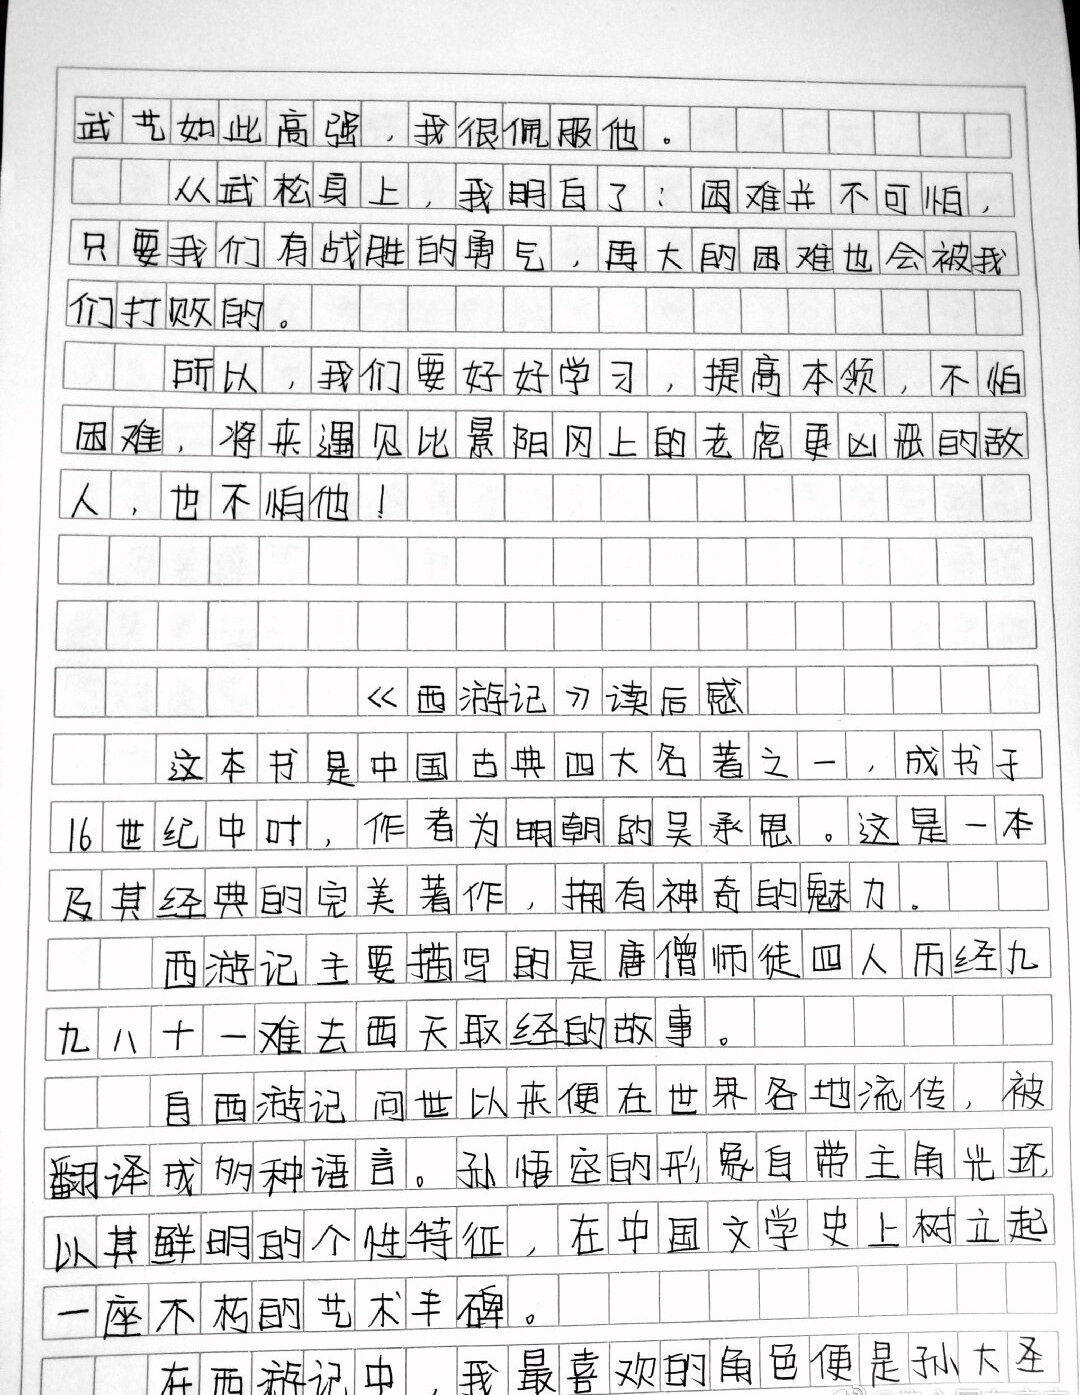 武艺如此高强，我很佩服他。
从武松身上，我明白了：困难并不可怕，
只要我们有战胜的勇气，再大的困难也会被我
们打败的。
所以，我们要好好学习，提高本领，不怕
困难，将来遇见比景阳冈上的老虎更凶恶的敌
人，也不怕他！
《西游记》读后感
这本书是中国古典四大名著之一，成书于
16世纪中叶，作者为明朝的吴承恩。这是一本
及其经典的完美著作，拥有神奇的魅力。
西游记主要描写的是唐僧师徒四人历经九
九八十一难去西天取经的故事。
自西游记问世以来便在世界各地流传，被
翻译成多种语言。孙悟空的形象自带主角光环
以其鲜明的个性特征，在中国文学史上树立起
一座不朽的艺术丰碑。
在西游记中，我最喜欢的角色便是孙大圣